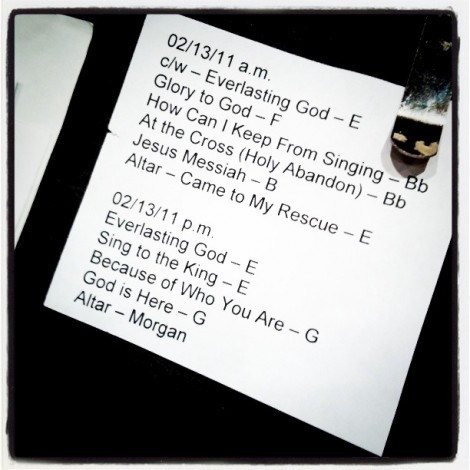 02/13/11 a.m.
c/w – Everlasting God – E
Glory to God – F
How Can I Keep From Singing – Bb
At the Cross (Holy Abandon) – Bb
Jesus Messiah – B
Altar – Came to My Rescue – E
02/13/11 p.m.
Everlasting God – E
Sing to the King – E
Because of Who You Are – G
God is Here – G
Altar – Morgan